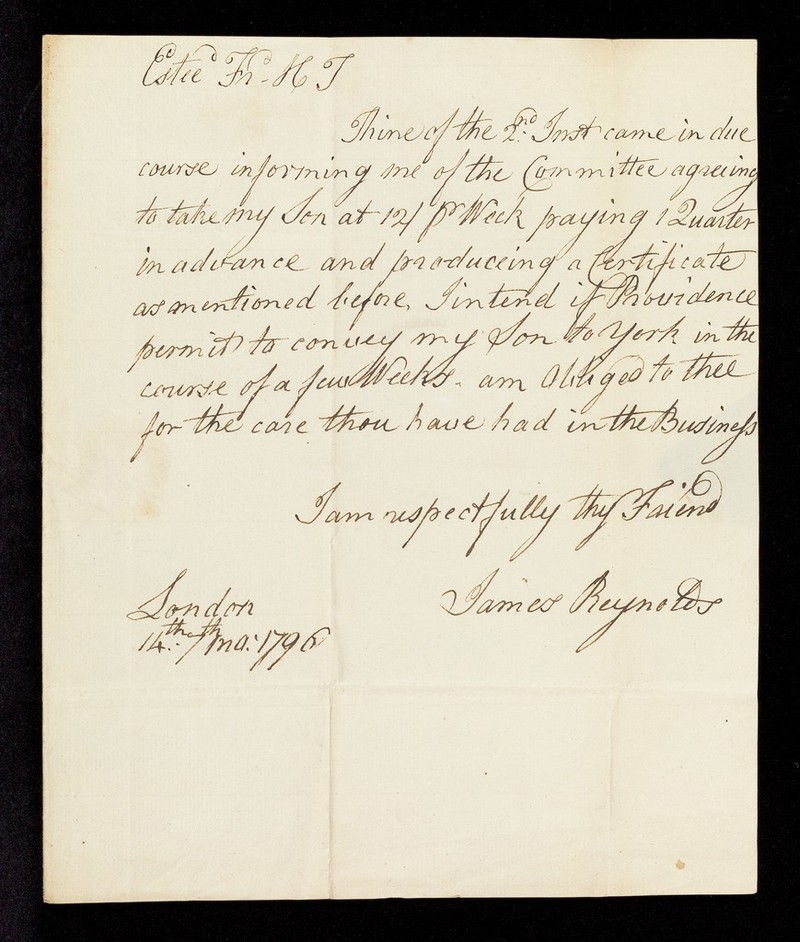 Esteed Frd. H T
Thine of the 2d. Inst came in due
course informing me of the Committee agreeing
to take my Son at 12/ pr Week paying 1 Quarter
in advance and produceing a Certificate
as mentioned before, I intend if Providence
permit to convey my Son to York in the
course of a few Weeks. am Obliged to thee
for the care thou have had in the Business
I am respectfully thy Friend
James Reynolds
London
14th. 7th mo: 1796